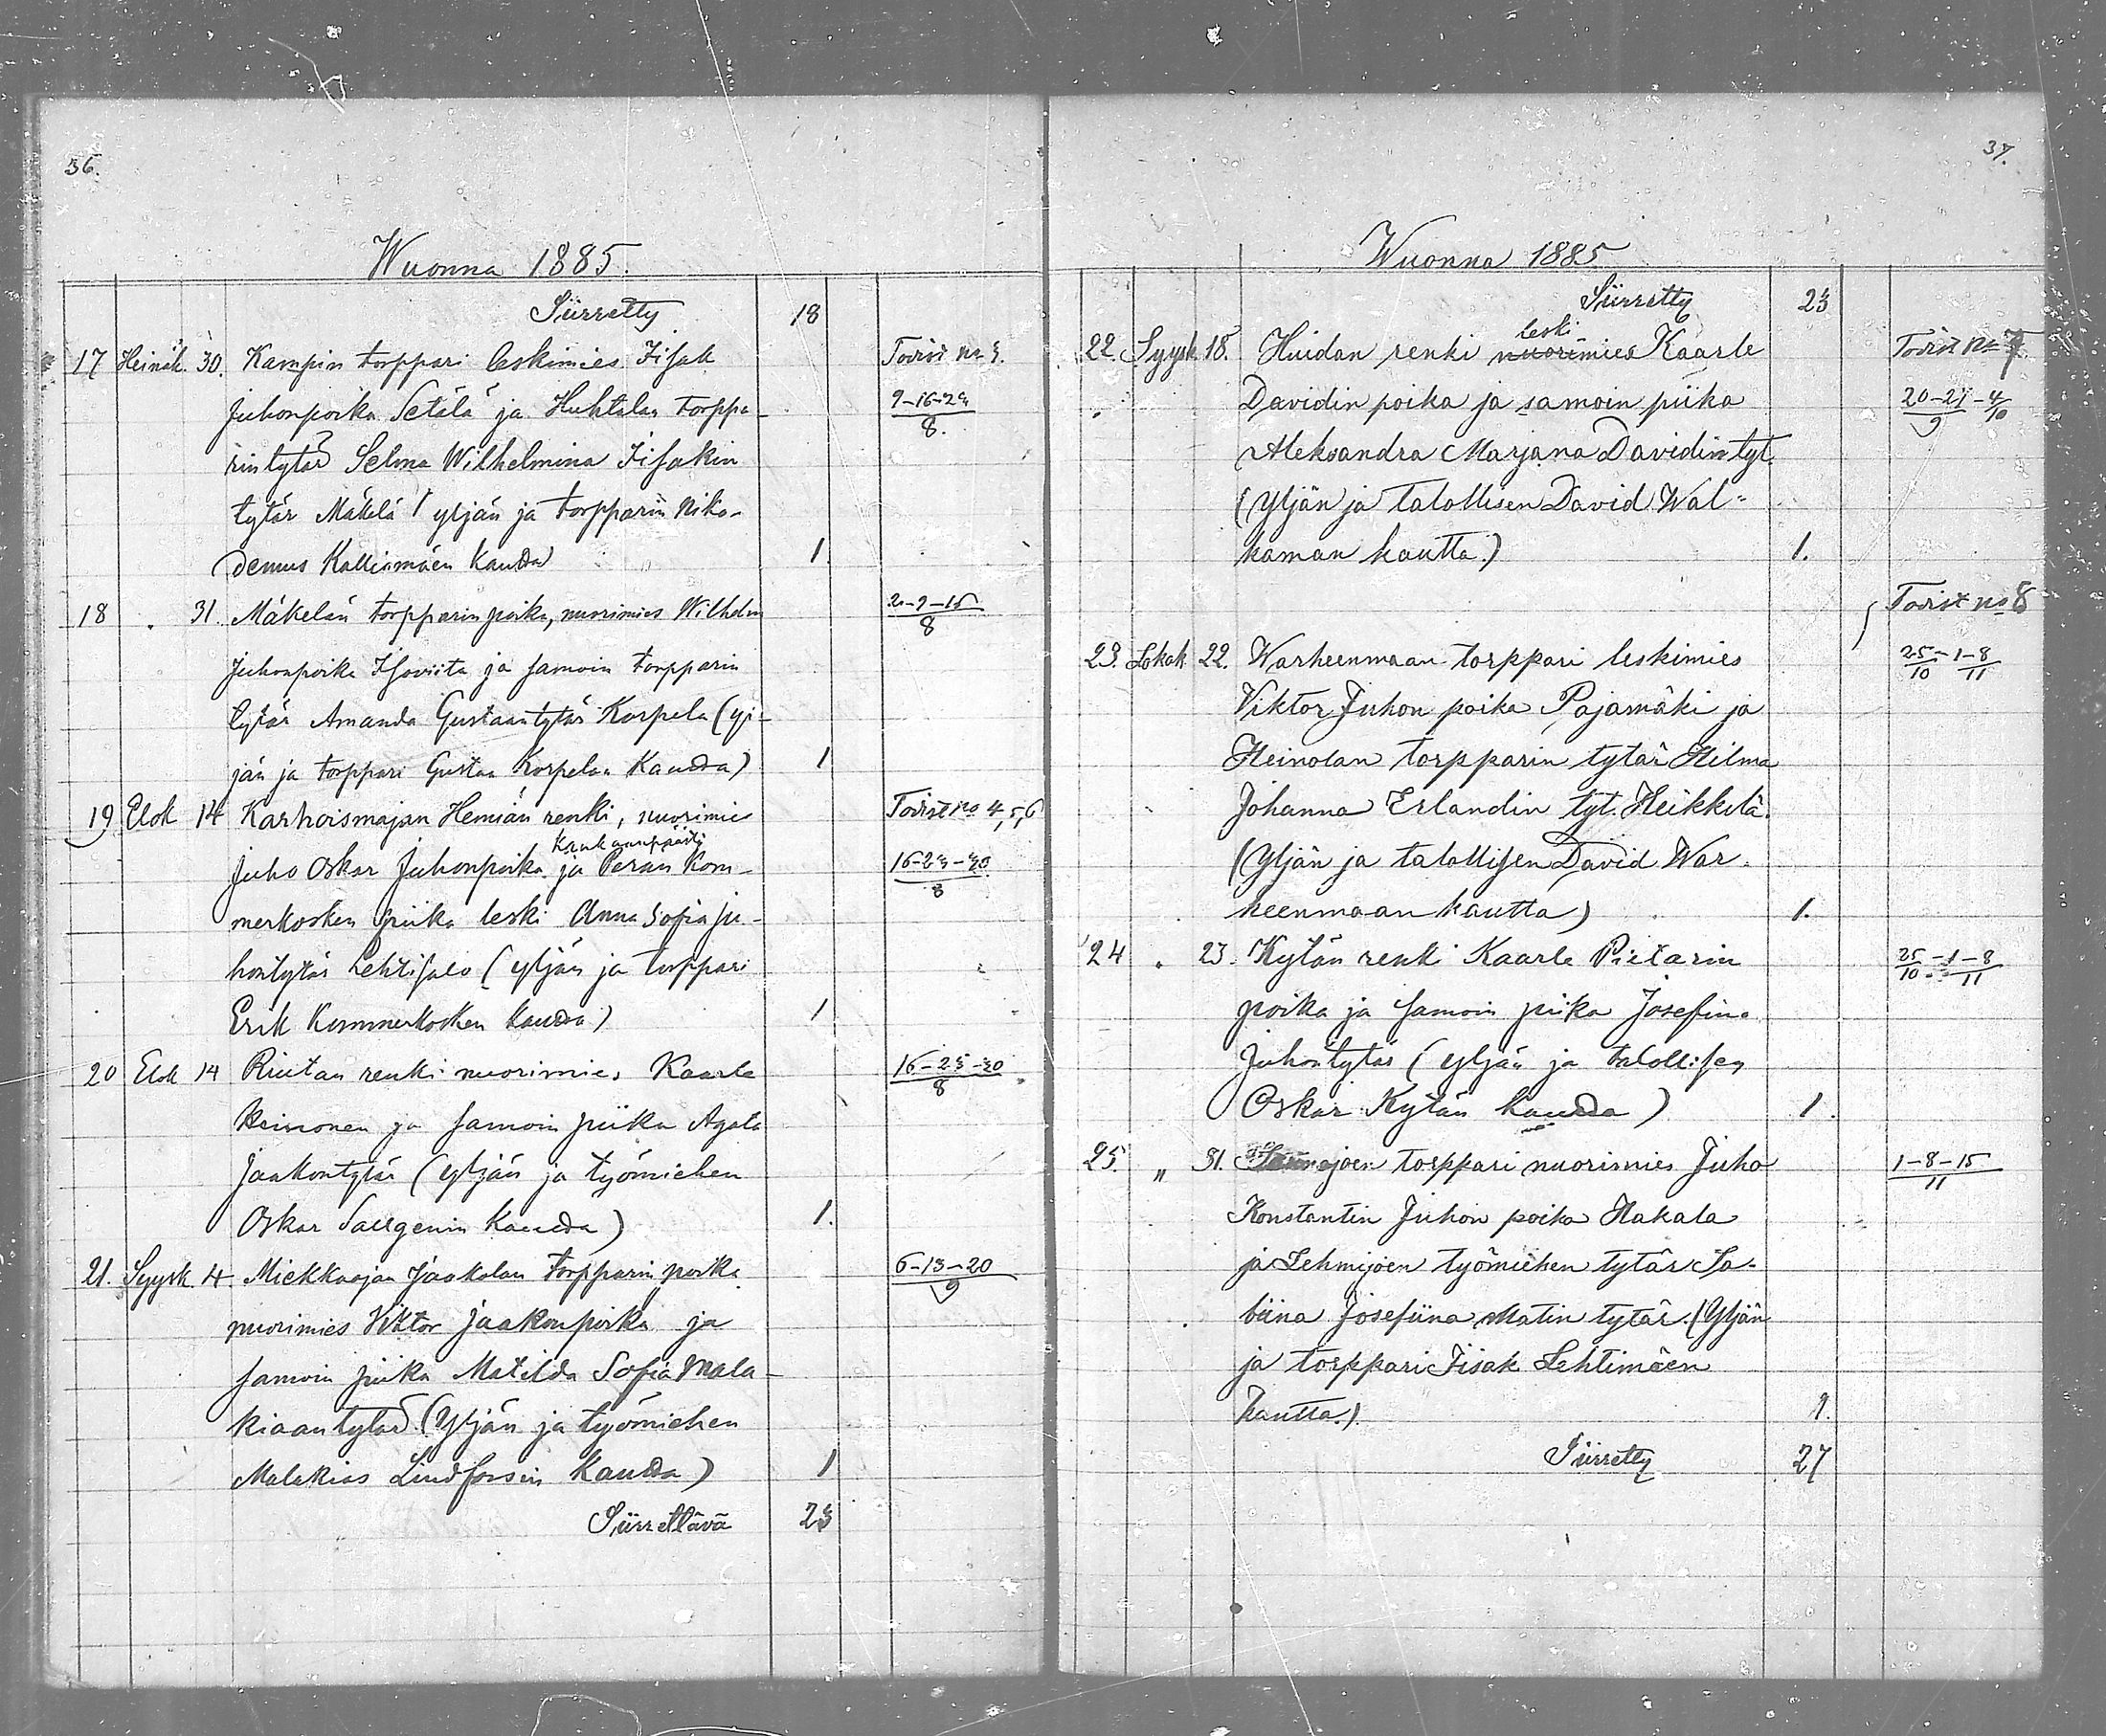 36.
Wuonna 1885.
Siirretty 18
17 Heinäk. 30. Kampin torppari leskimies Iisak Todist no 3.
Juhonpoika Setälä ja Huhtalan torppa- 9-16-23
rintytär Selma Wilhelmina Iisakin 8.
tytär Mäkelä / yljän ja torpparin Niko-
demus Kalliomäen kautta 1
18 „ 31. Mäkelän torpparin poika, nuorimies Wilhelm 2-9-15
8
Juhonpoika Isoviita ja samoin torpparin
tytär Amanda Gustaantytär Korpela (yl-
jän ja torppari Gustaa Korpelan kautta) 1
19 Elok 14 Karhoismajan Hemiän renki, nuorimies Todist no 4,5,6
Juho Oskar Juhonpoika ja Peran Kom- 16-23-30
8
merkosken piika leski Anna Sofia Ju-
hontytär Lehtisalo (yljän ja torppari
Erik Kommerkosken kautta) 1
20 Elok 14 Riutan renki nuorimies Kaarle 16-23-30
8
Keinonen ja samoin piika Agata
Jaakontytär (yljän ja työmiehen
Oskar Saurgenin kautta) 1.
21. Syysk. 4. Miekkaojan Jaakolan torpparin poika 6-13-20
9
nuorimies Viktor Jaakonpoika ja
samoin piika Matilda Sofia Mala-
kiaantytär (Yljän ja työmiehen
Malakias Lindforsin kautta) 1
Siirrettävä 23
37.
Wuonna 1885
Siirretty 23
leski
22. Syysk 18. Huidan renki nuorimies Kaarle Todist no 7
Davidin poika ja samoin piika 20-27-4/10
9
Aleksandra Marjana Davidin tyt.
(Yljän ja talollisen David Wal-
kaman kautta.) 1.
Todist no 8
23. Lokak. 22. Warheenmaan torppari leskimies 25-1-8
10 11
Viktor Juhon poika Pajamäki ja
Heinolan torpparin tytär Hilma
Johanna Erlandin tyt. Heikkilä.
(Yljän ja talollisen David War-
heenmaan kautta) 1.
24 „ 23. Kytän renki Kaarle Pietarin 25-1-8
10 11
poika ja samoin piika Josefina
Juhontytär (yljän ja talollisen
Oskar Kytän kautta) 1.
25. „ 31. torppari nuorimies Juho 1-8-15
11
Konstantin Juhon poika Hakala
ja Lehmijoen työmiehen tytär Sa-
biina Josefiina Matin tytär. (Yljän
ja torppari Iisak Lehtimäen
kautta.) 1.
Siirretty 27